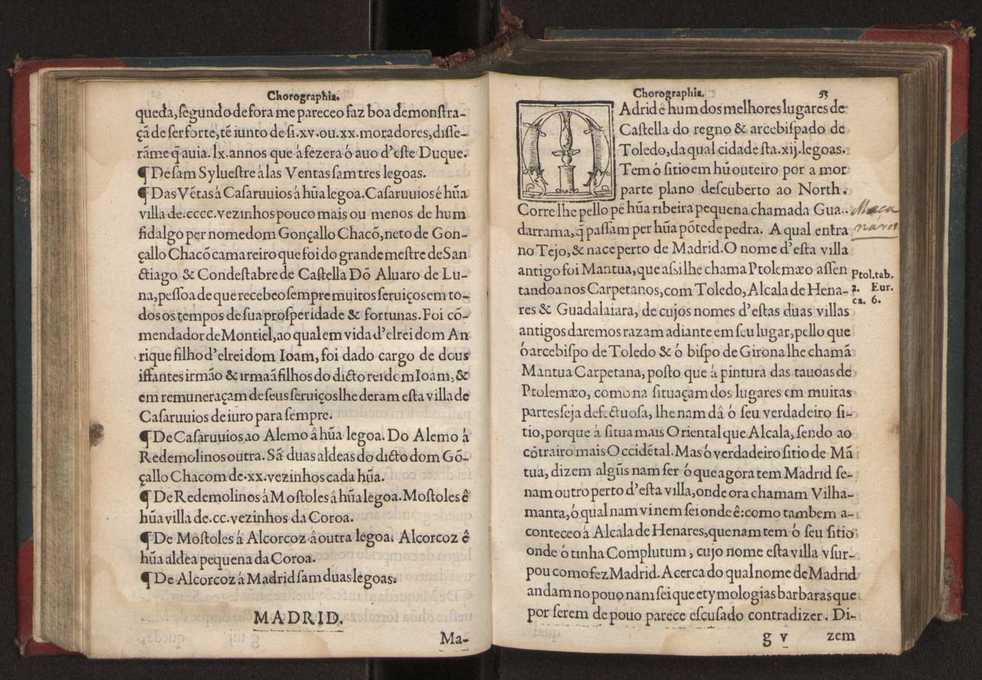 Chorographia.
queda, segundo de fora me pareceo faz boa demonstra-
çã de ser forte, tẽ iunto de si. xv. ou. xx. moradores, disse-
rãme q̃ auia. lx. annos que â fezera ó auo d'este Duque.
¶ De sam Syluestre âlas Ventas sam tres legoas.
¶ Das Vẽtas â Casaruuios â hũa legoa. Casaruuios é hũa
villa de. cccc. vezinhos pouco mais ou menos de hum
fidalgo per nome dom Gonçallo Chacõ, neto de Gon-
çallo Chacõ camareiro que foi do grande mestre de San
ctiago & Condestabre de Castella Dõ Aluaro de Lu-
na, pessoa de que recebeo sempre muitos seruiços em to-
dos os tempos de sua prosperidade & fortunas. Foi cõ-
mendador de Montiel, ao qual em vida d'elrei dom An
rique filho d'elrei dom Ioam, foi dado cargo de dous
iffantes irmão & irmaã filhos do dicto rei dom Ioam, &
em remuneraçam de seus seruiços lhe deram esta villa de
Casaruuios de iuro para sempre.
¶ De Casaruuios ao Alemo â hũa legoa. Do Alemo â
Redemolinos outra. Sã duas aldeas do dicto dom Gõ-
çallo Chacom de. xx. vezinhos cada hũa.
¶ De Redemolinos â Mostoles â hũa legoa. Mostoles é
hũa villa de. cc. vezinhos da Coroa.
¶ De Mostoles â Alcorcoz â outra legoa. Alcorcoz é
hũa aldea pequena da Coroa.
¶ De Alcorcoz â Madrid sam duas legoas.
MADRID.
Ma-
Chorographia. 53
MAdrid é hum dos melhores lugares de
Castella do regno & arcebispado de
Toledo, da qual cidade sta. xij. legoas.
Tem ó sitio em hũ outeiro por a mor
parte plano descuberto ao North.
Corre lhe pello pé hũa ribeira pequena chamada Gua-
darrama, q̃ passam per hũa põte de pedra. A qual entra
no Tejo, & nace perto de Madrid. O nome d'esta villa
antigo foi Mantua, que assi lhe chama Ptolemæo assen
tandoa nos Carpetanos, com Toledo, Alcala de Hena-
res & Guadalaiara, de cujos nomes d'estas duas villas
antigos daremos razam adiante em seu lugar, pello que
ó arcebispo de Toledo & ó bispo de Girona lhe chamã
Mantua Carpetana, posto que â pintura das tauoas de
Ptolemæo, como na situaçam dos lugares em muitas
partes seja defectuosa, lhe nam dâ ó seu verdadeiro si-
tio, porque â situa mais Oriental que Alcala, sendo ao
cõtrairo mais Occidẽtal. Mas ó verdadeiro sitio de Mã
tua, dizem algũs nam ser ó que agora tem Madrid se-
nam outro perto d'esta villa, onde ora chamam Vilha-
manta, ó qual nam vi nem sei onde é: como tambem a-
conteceo â Alcala de Henares, que nam tem ó seu sitio
onde ó tinha Complutum, cujo nome esta villa vsur-
pou como fez Madrid. Acerca do qual nome de Madrid
andam no pouo nam sei que etymologias barbaras que
por serem de pouo parece escusado contradizer. Di-
g v zem
Maça
nares
Ptol. tab.
2. Eur.
ca. 6.